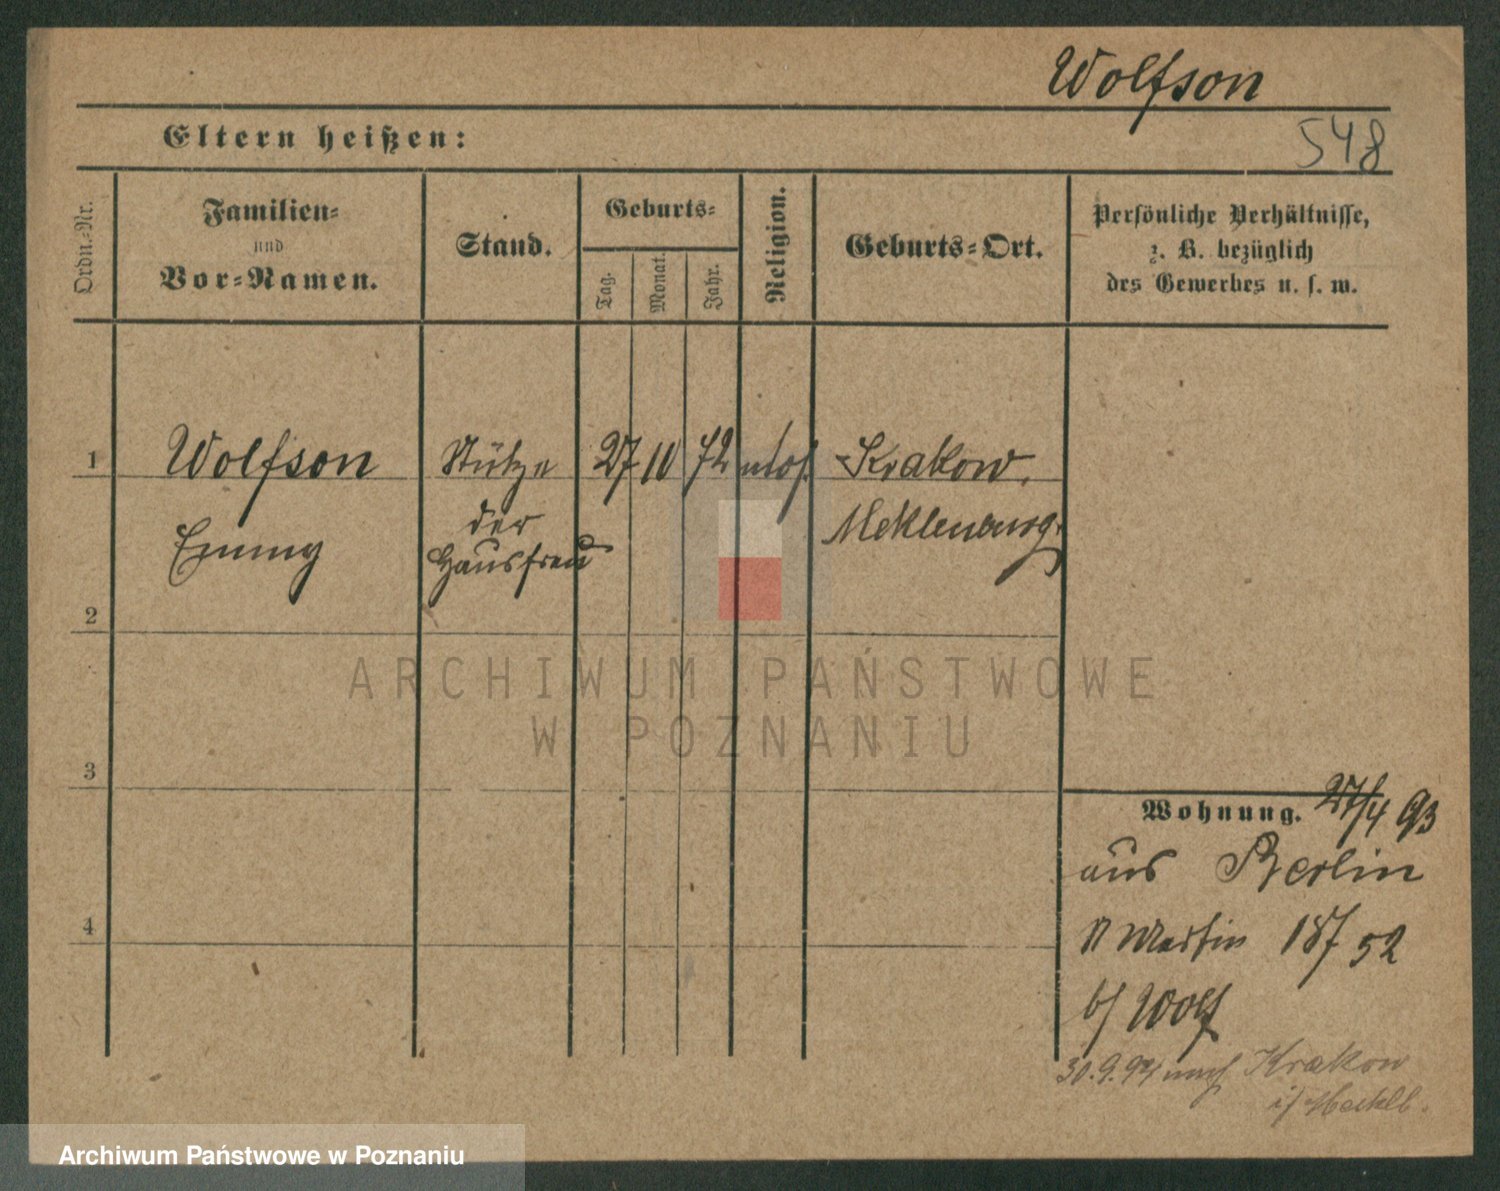 Wolfson
548
Eltern heißen:
Ordn.-Nr.
Familien-
und
Vor-Namen.
Stand.
Geburts-
Tag.
Monat.
Jahr.
Religion.
Geburts-Ort.
Persönliche Verhältnisse,
z. B. bezüglich
des Gewerbes u. s. w.
1 Wolfson Stütze 27 10 72 mos. Krakow,
Emmy der Meklenburg.
Hausfrau
2
3
4
Wohnung. 27/4 93
aus Berlin
Martin 52
b/ Wolf
30.9.94 nach Krakow
i/ Meckl.
ARCHIWUM PAŃSTWOWE
W POZNANIU
Archiwum Państwowe w Poznaniu